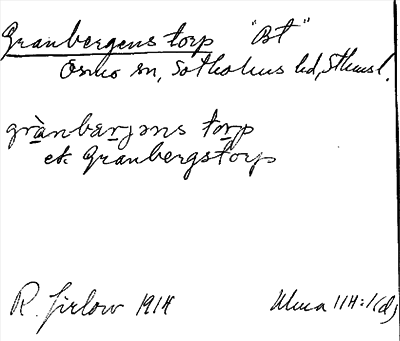 Granbergens torp "Bt"
Ösmo sn, Sotholms hd, Sthmsl.
grànbærjəns torp
ek. Granbergstorp
R. Jirlow 1914 Ulma 114:1(d)